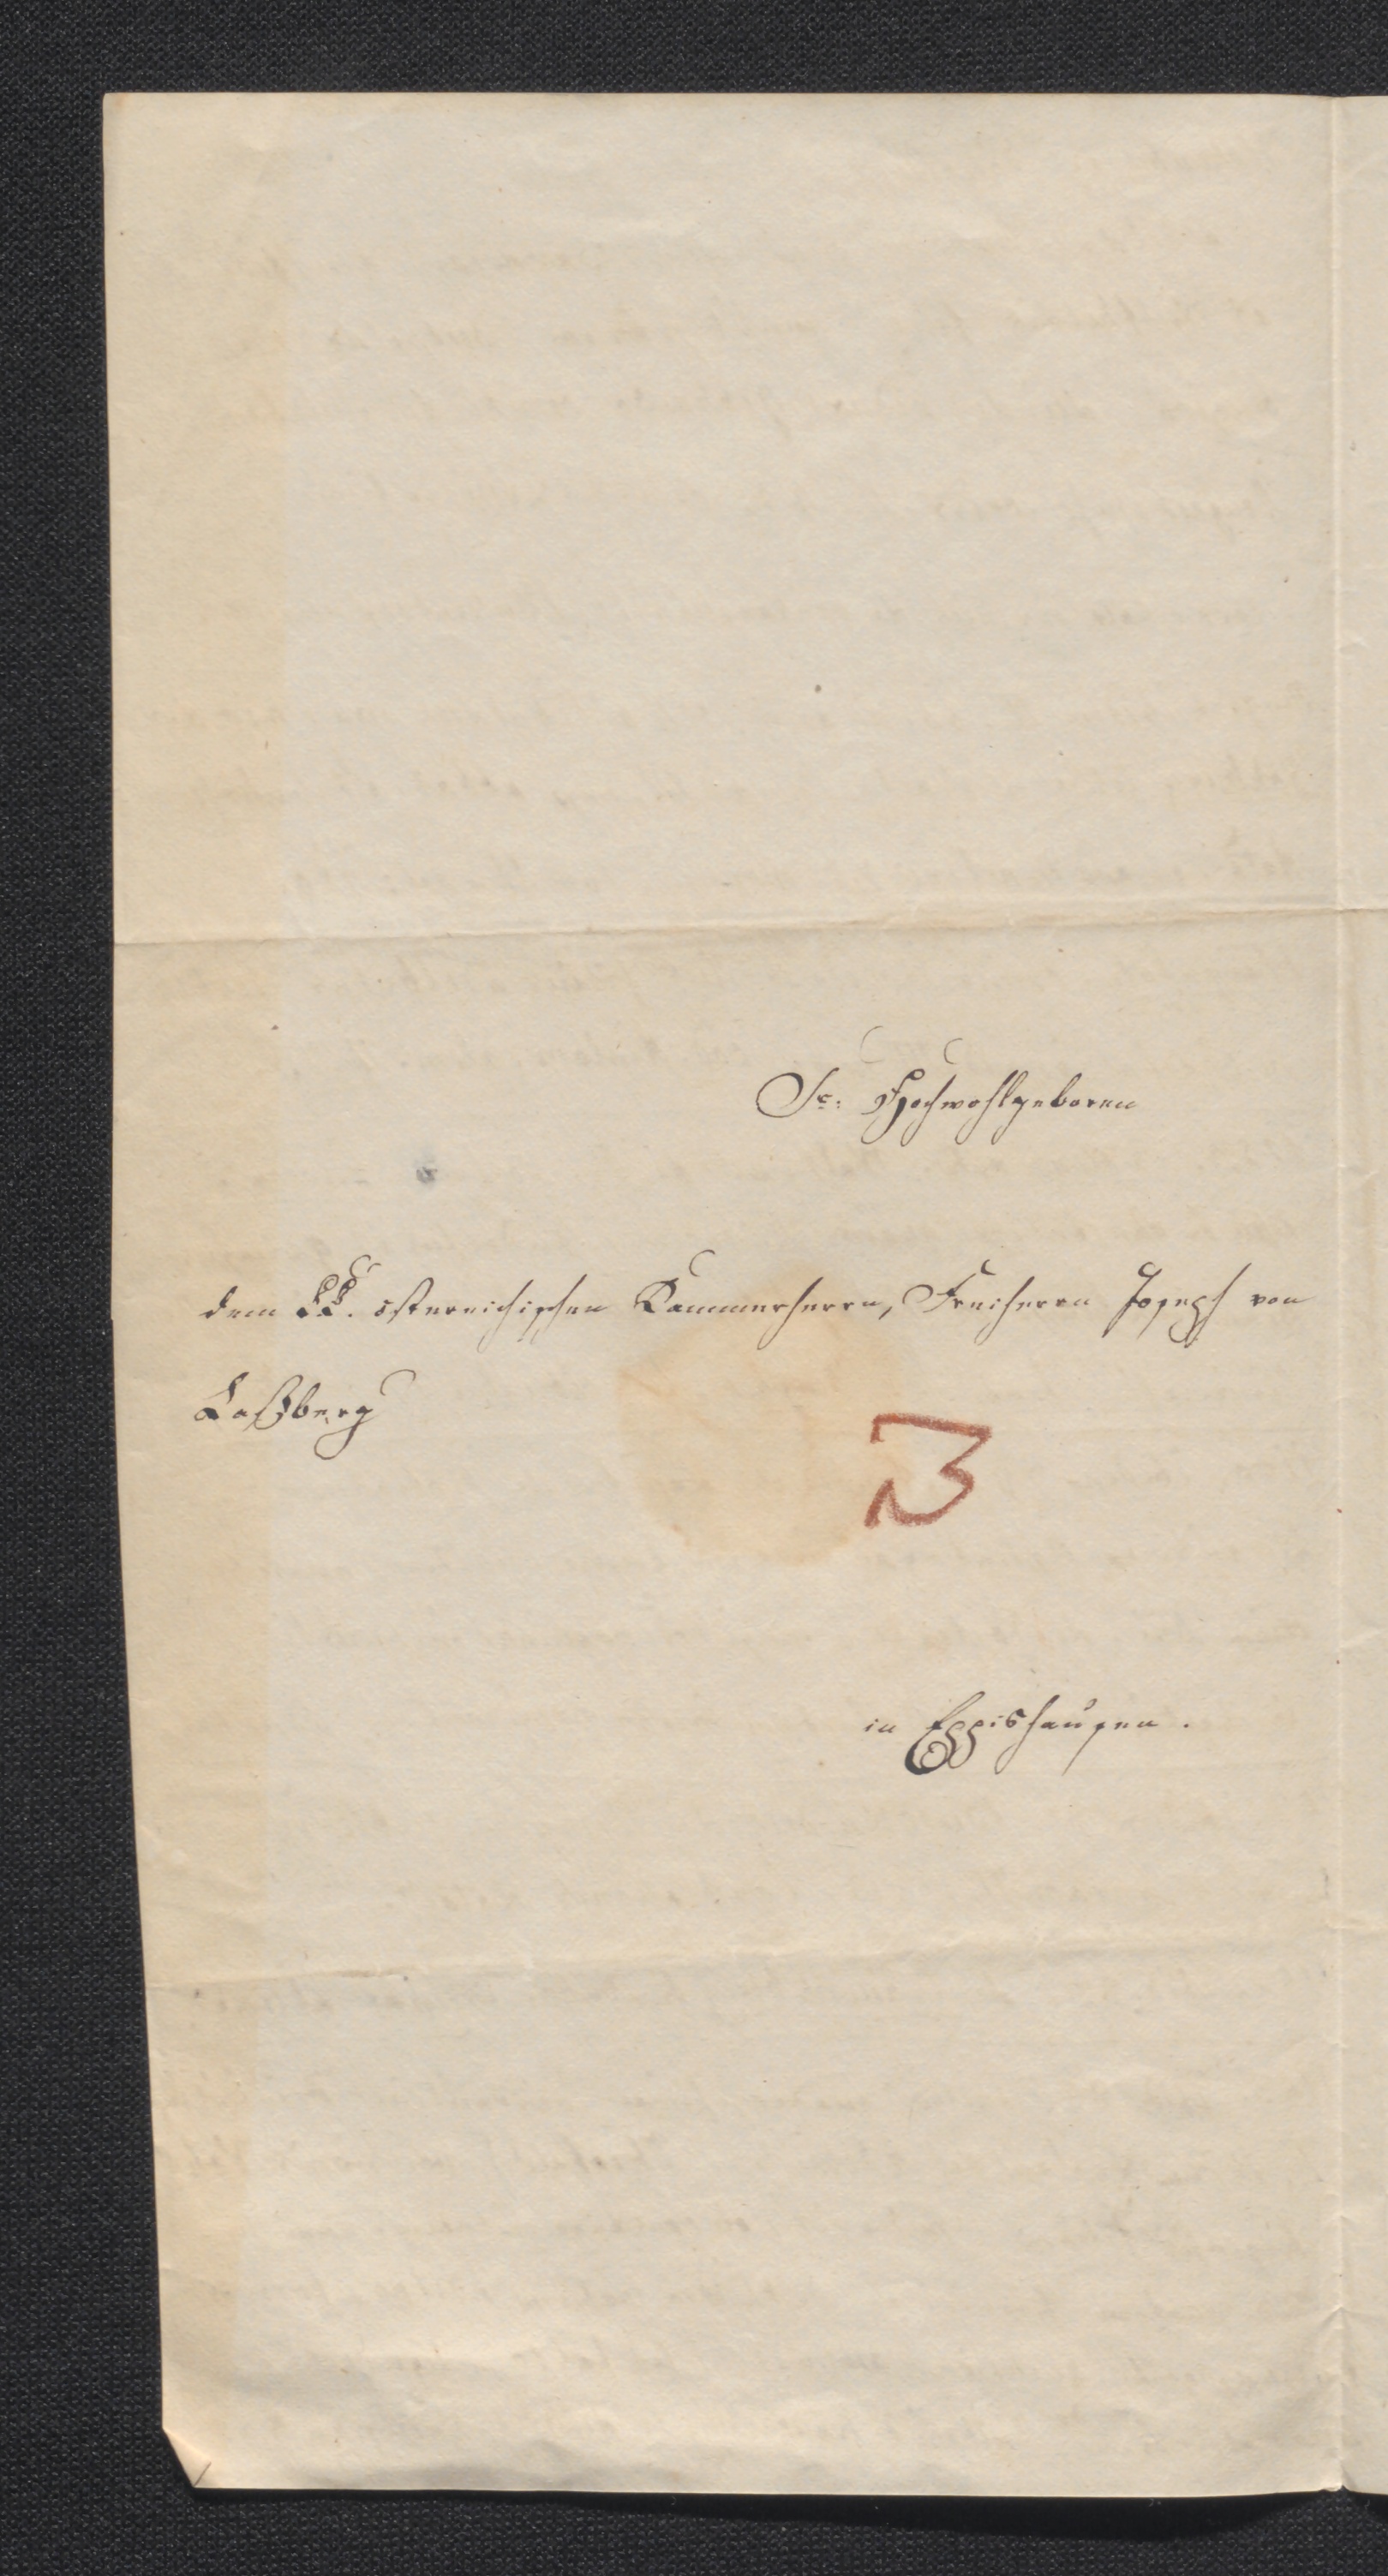 Sr: Hochwohlgeboren
dem KK. östereichischen Kammerherrn, Freiherrn Joseph von
Laßberg
3
in Eppishausen.